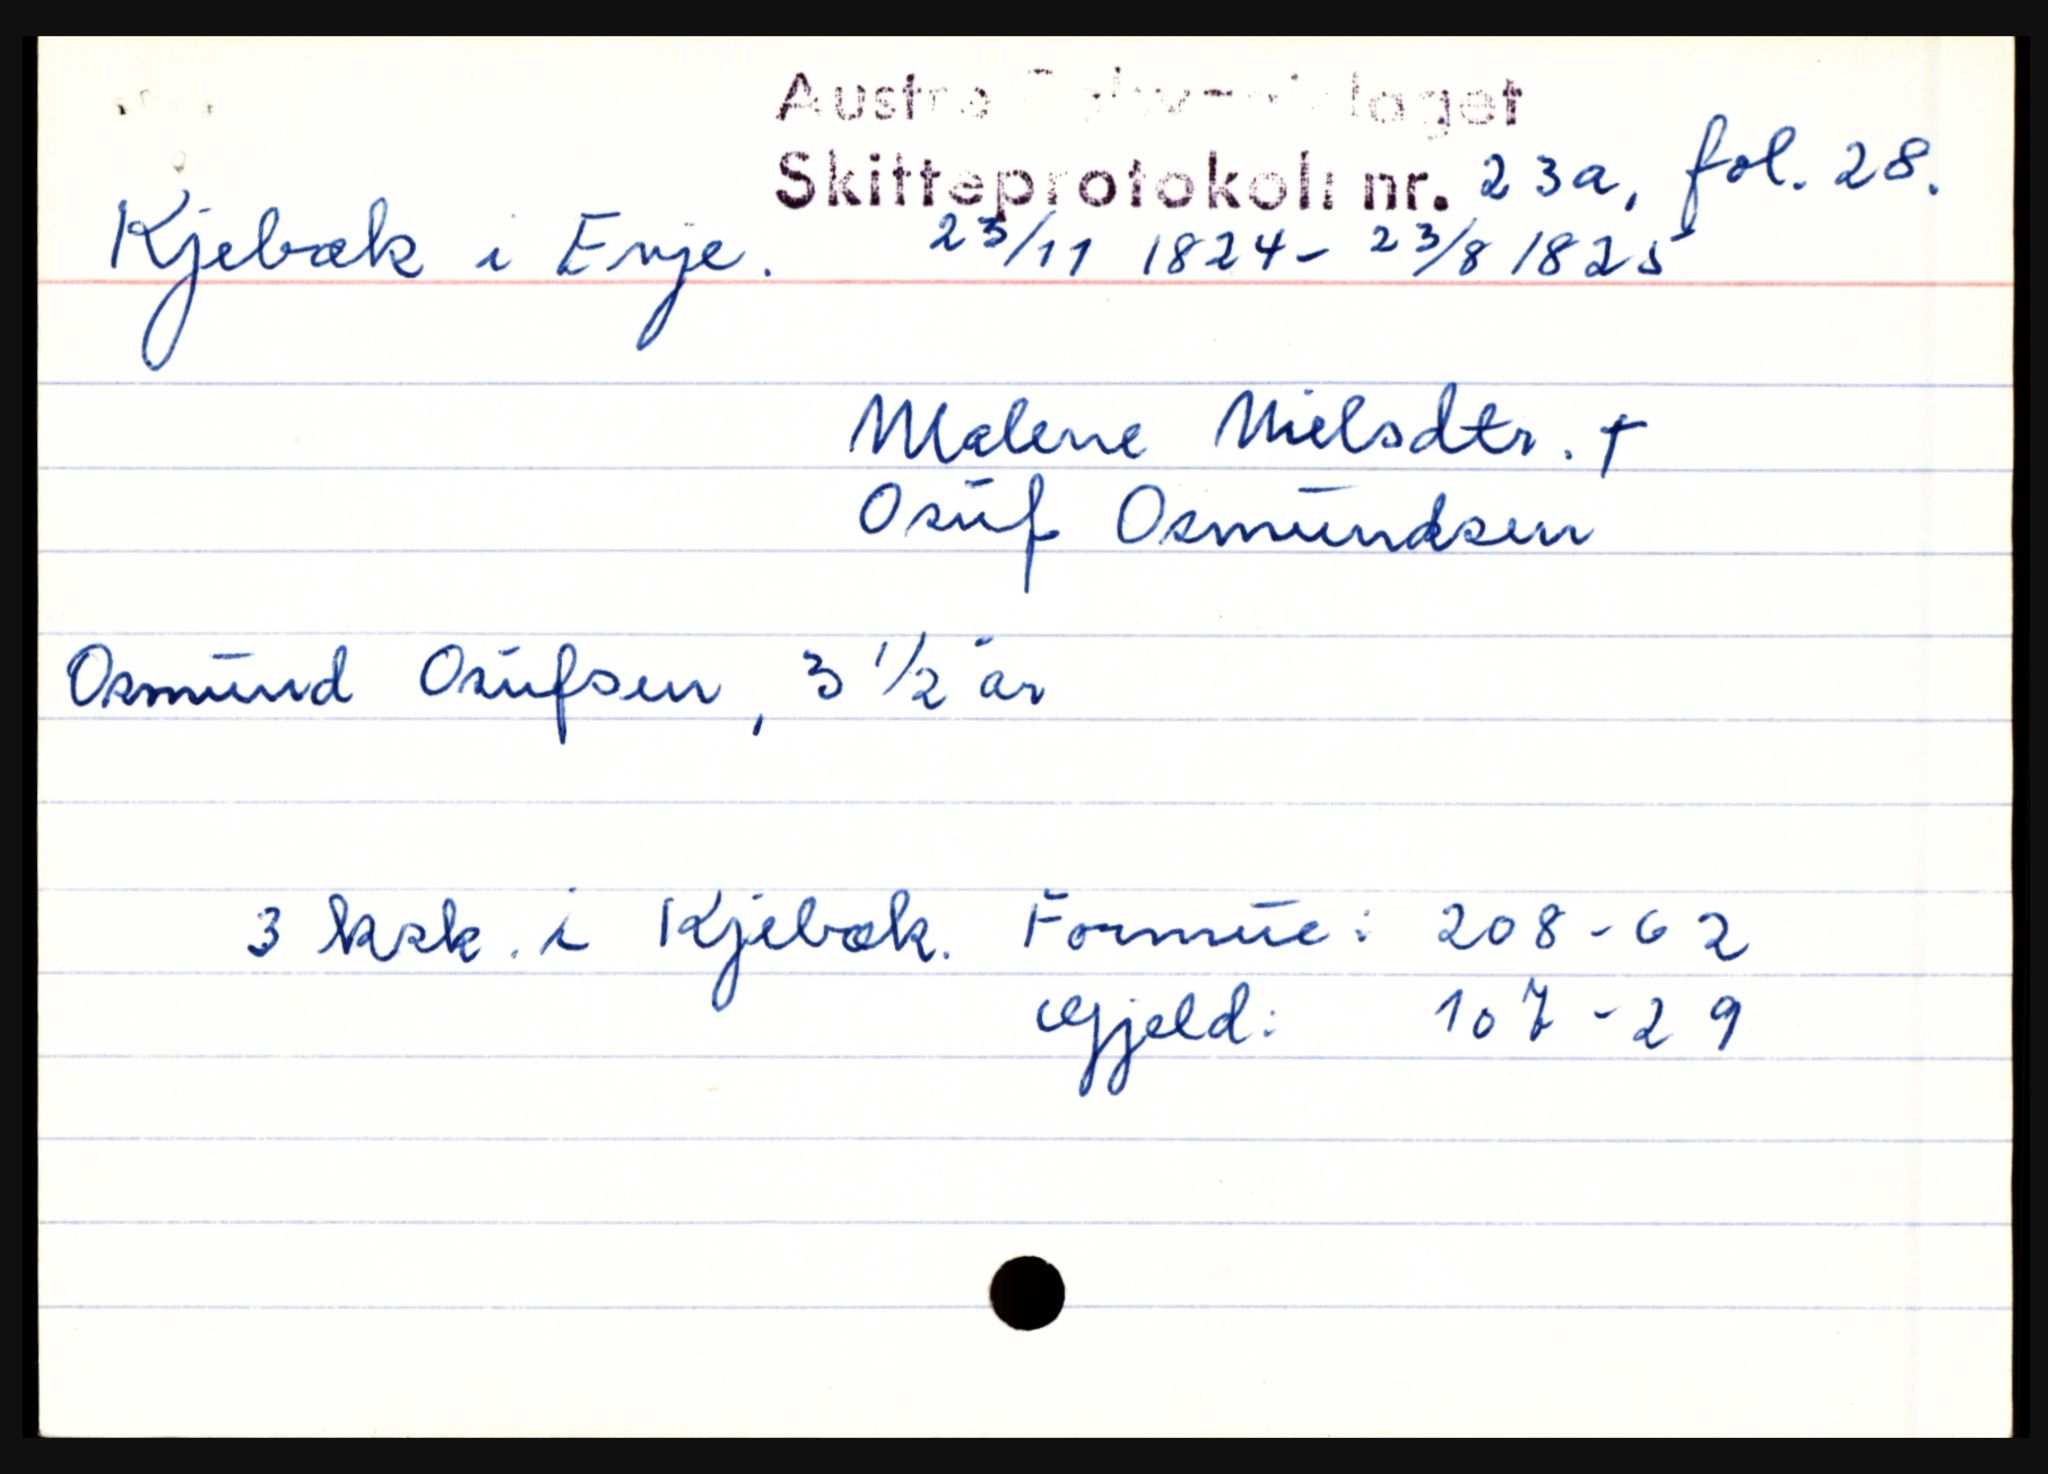 Austre
Skifteprotokoll nr. 23a, fol. 28.
Kjebæk i Evje. 23/11 1824 - 23/8 1825
Malene Nielsdtr. †
Osuf Osmundsen
Osmund Osufsen, 3 1/2 år
3 ksk. i Kjebæk. Formue: 208 - 62
Gjeld: 107 - 29